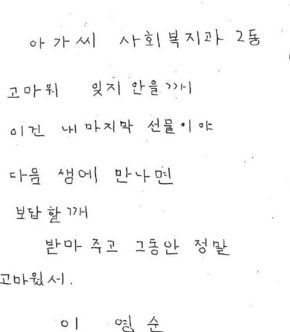 아가씨 사회복지과 2동
고마워 잊지 안을께
이건 내 마지막 선물이야
다음 생에 만나면
보답할께
받아 주고 그동안 정말
고마웠서.
이 영순